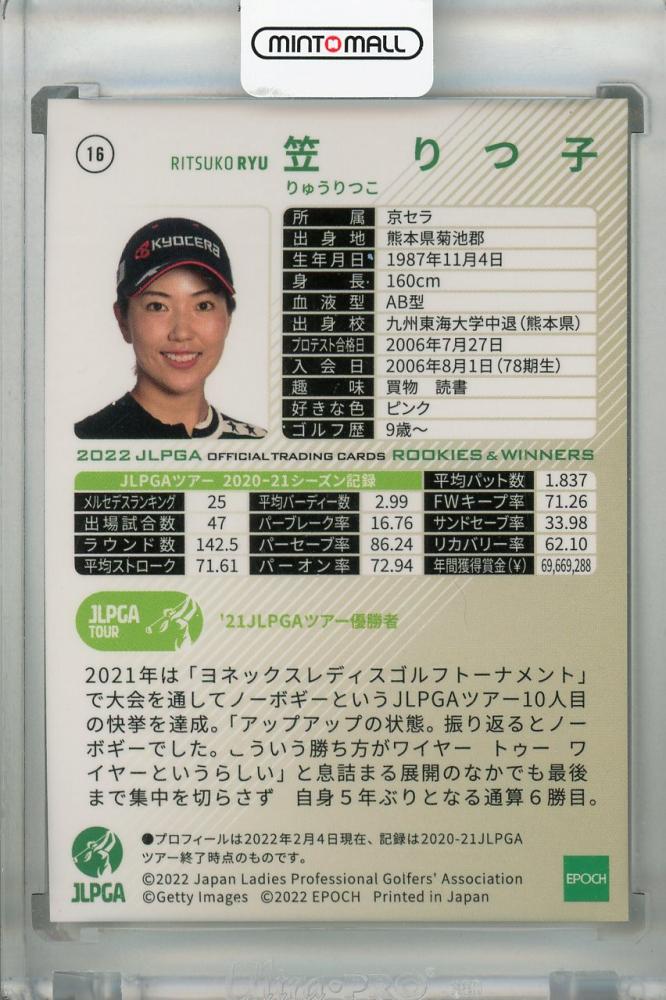 MINTOMALL
16
RITSUKO RYU 笠 りつ子
りゅうりつこ
KYOCERA
所属 京セラ
出身地 熊本県菊池郡
生年月日 1987年11月4日
身長 160cm
血液型 AB型
出身校 九州東海大学中退(熊本県)
プロテスト合格日 2006年7月27日
入会日 2006年8月1日(78期生)
趣味 買物 読書
好きな色 ピンク
ゴルフ歴 9歳~
2022 JLPGA OFFICIAL TRADING CARDS ROOKIES & WINNERS
JLPGAツアー 2020-21シーズン記録 平均パット数 1.837
メルセデスランキング 25 平均バーディー数 2.99 FWキープ率 71.26
出場試合数 47 パーブレーク率 16.76 サンドセーブ率 33.98
ラウンド数 142.5 パーセーブ率 86.24 リカバリー率 62.10
平均ストローク 71.61 パーオン率 72.94 年間獲得賞金(¥) 69,669,288
JLPGA
TOUR
'21JLPGAツアー優勝者
2021年は「ヨネックスレディスゴルフトーナメント」
で大会を通してノーボギーというJLPGAツアー10人目
の快挙を達成。「アップアップの状態。振り返るとノー
ボギーでした。こういう勝ち方がワイヤー トゥー ワ
イヤーというらしい」と息詰まる展開のなかでも最後
まで集中を切らさず 自身5年ぶりとなる通算6勝目。
●プロフィールは2022年2月4日現在、記録は2020-21JLPGA
ツアー終了時点のものです。
JLPGA
©2022 Japan Ladies Professional Golfers' Association
©Getty Images ©2022 EPOCH Printed in Japan
EPOCH
Ultra•PRO